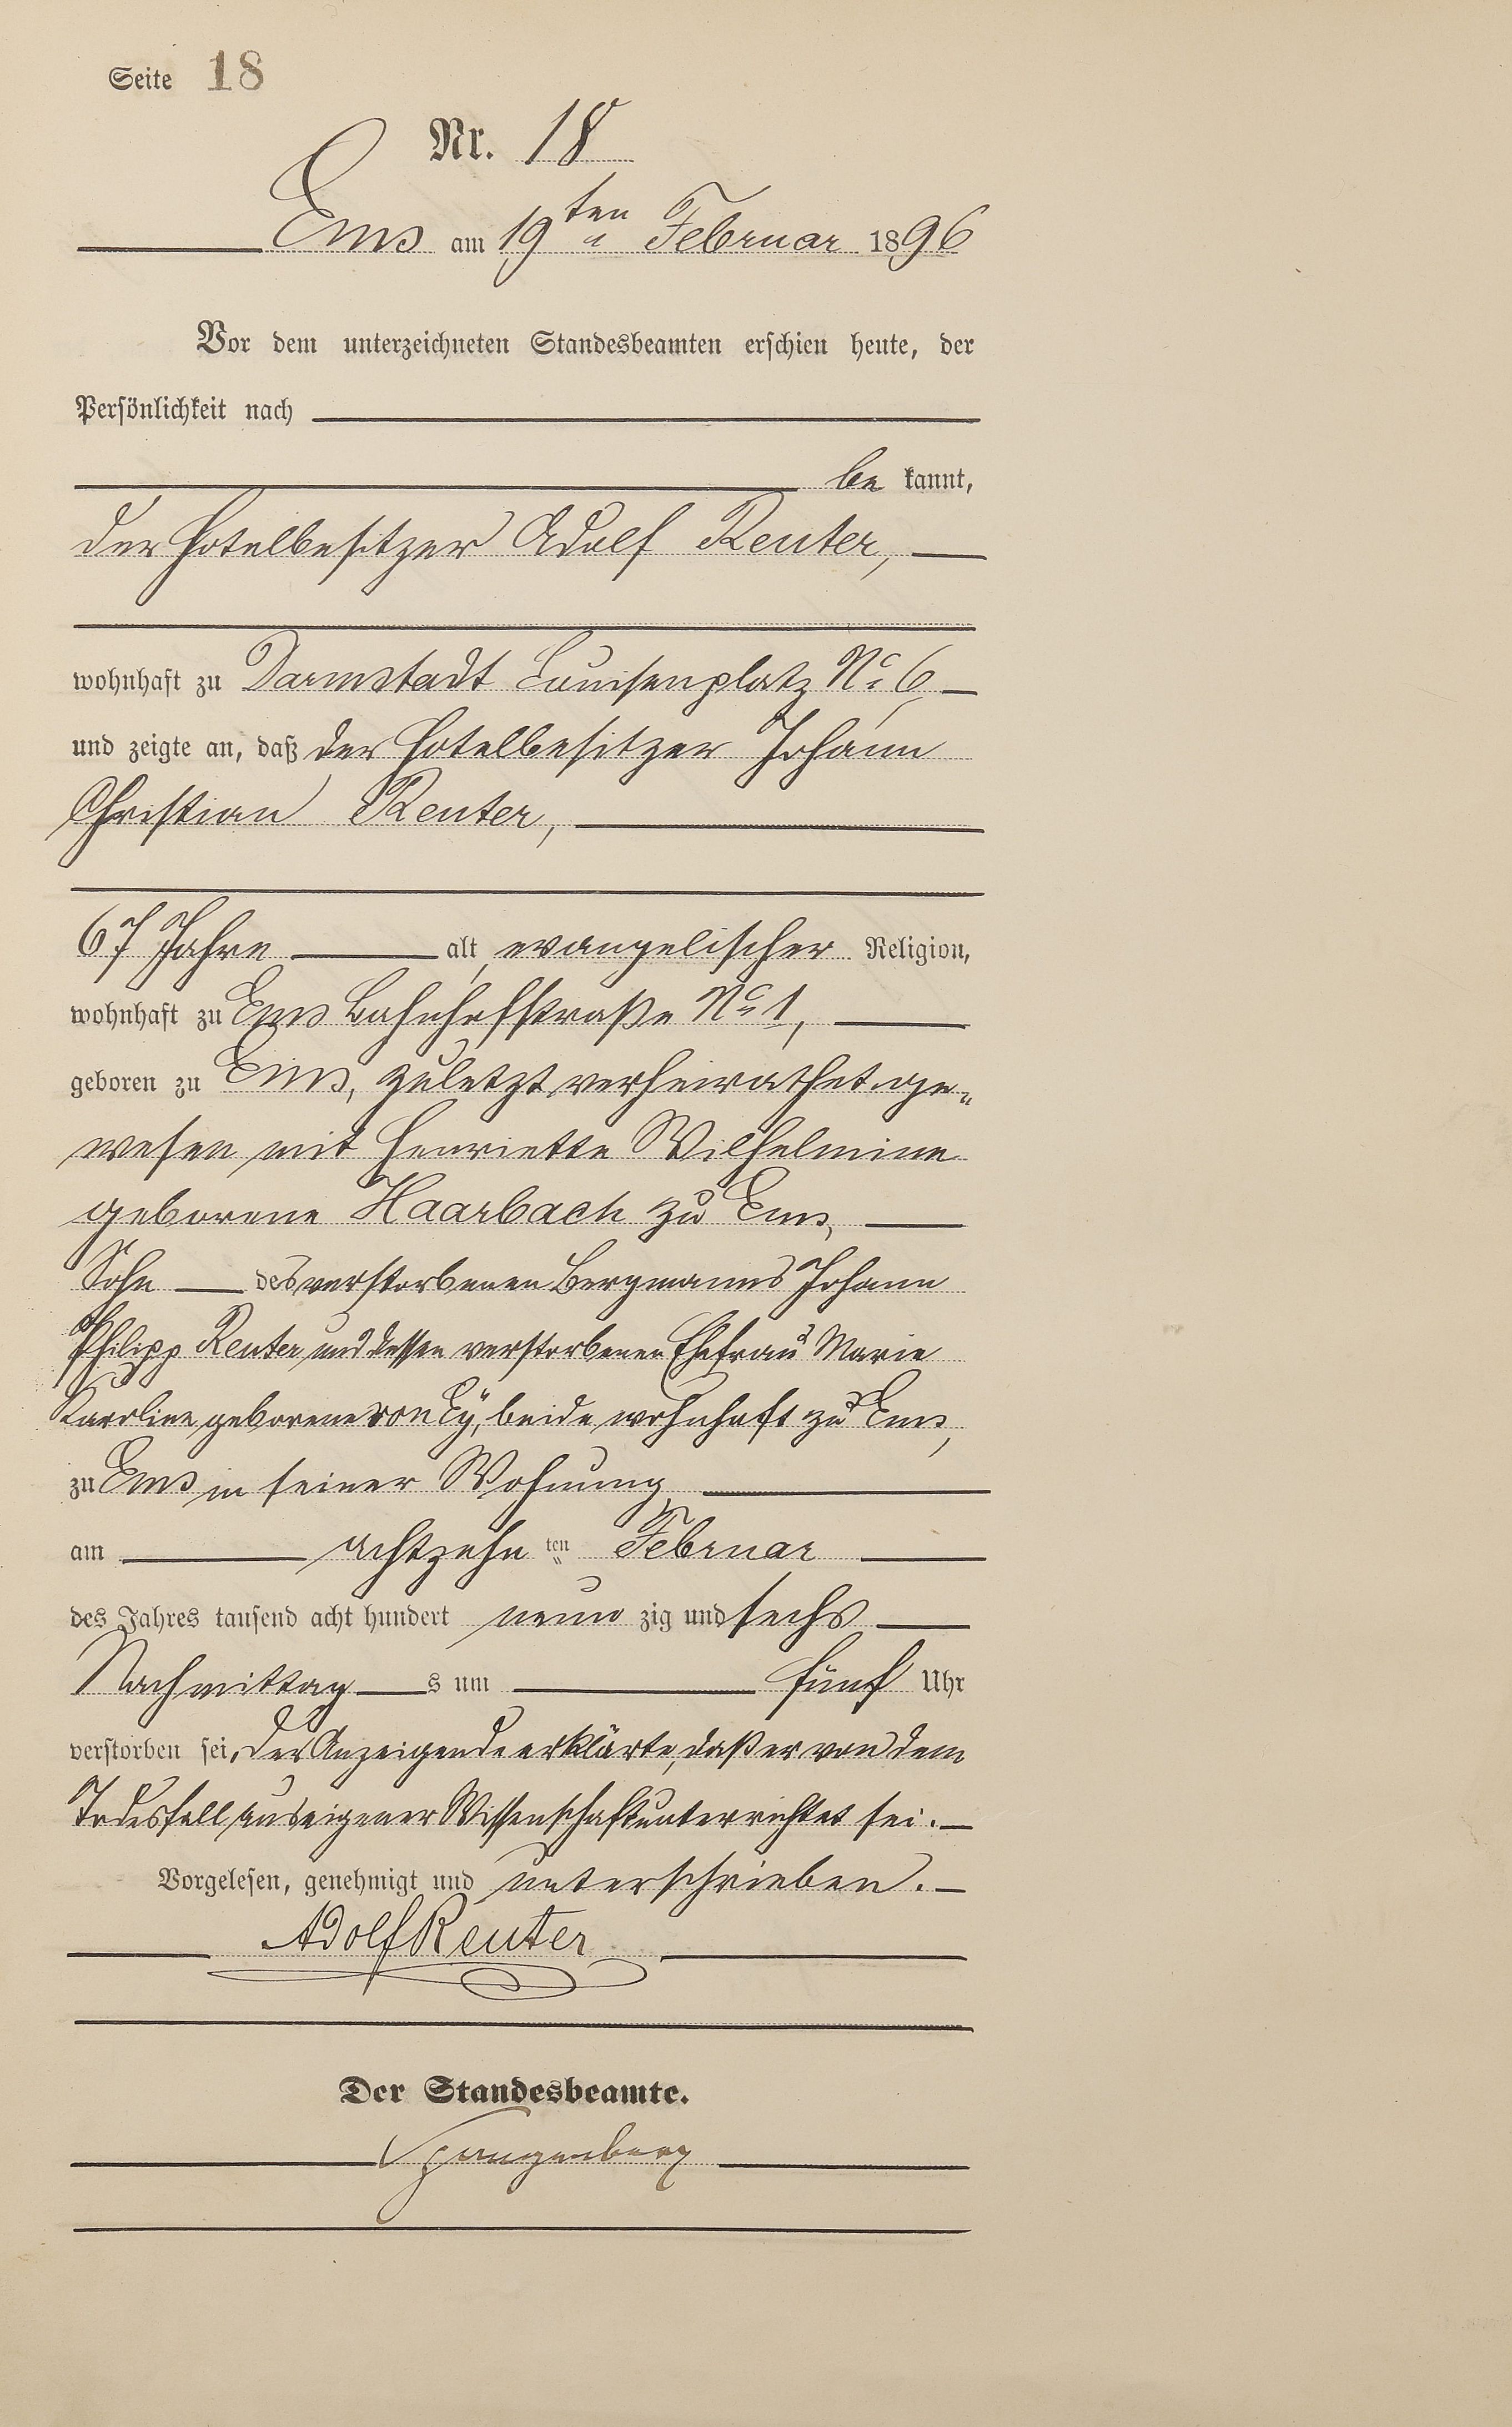 Seite 18
Nr. 18
Ems am 19ten Februar 1896
Vor dem unterzeichneten Standesbeamten erschien heute, der
Persönlichkeit nach
be kannt,
der Hotelbesitzer Adolf Reuter,
wohnhaft zu Darmstadt Luisenplatz No 6
und zeigte an, daß der Hotelbesitzer Johann
Christian Reuter,
67 Jahre alt, evangelischer Religion,
wohnhaft zu Ems Bahnhofstraße No 1,
geboren zu Ems, zuletzt verheirathet ge-
wesen mit Henriette Wilhelmine
geborene Haarbach zu Ems,
Sohn des verstorbenen Bergmanns Johann
Philipp Reuter und dessen verstorbenen Ehefrau Marie
Karoline geborene von Eÿ, beide wohnhaft zu Ems,
zu Ems in seiner Wohnung
am achtzehn ten Februar
des Jahres tausend acht hundert neun zig und sechs
Nachmittag s um fünf Uhr
verstorben sei, der Anzeigende erklärte, daß er von dem
Todesfall aus eigener Wissenschaft unterrichtet sei.
Vorgelesen, genehmigt und unterschrieben.
Adolf Reuter
Der Standesbeamte.
Spangenberg